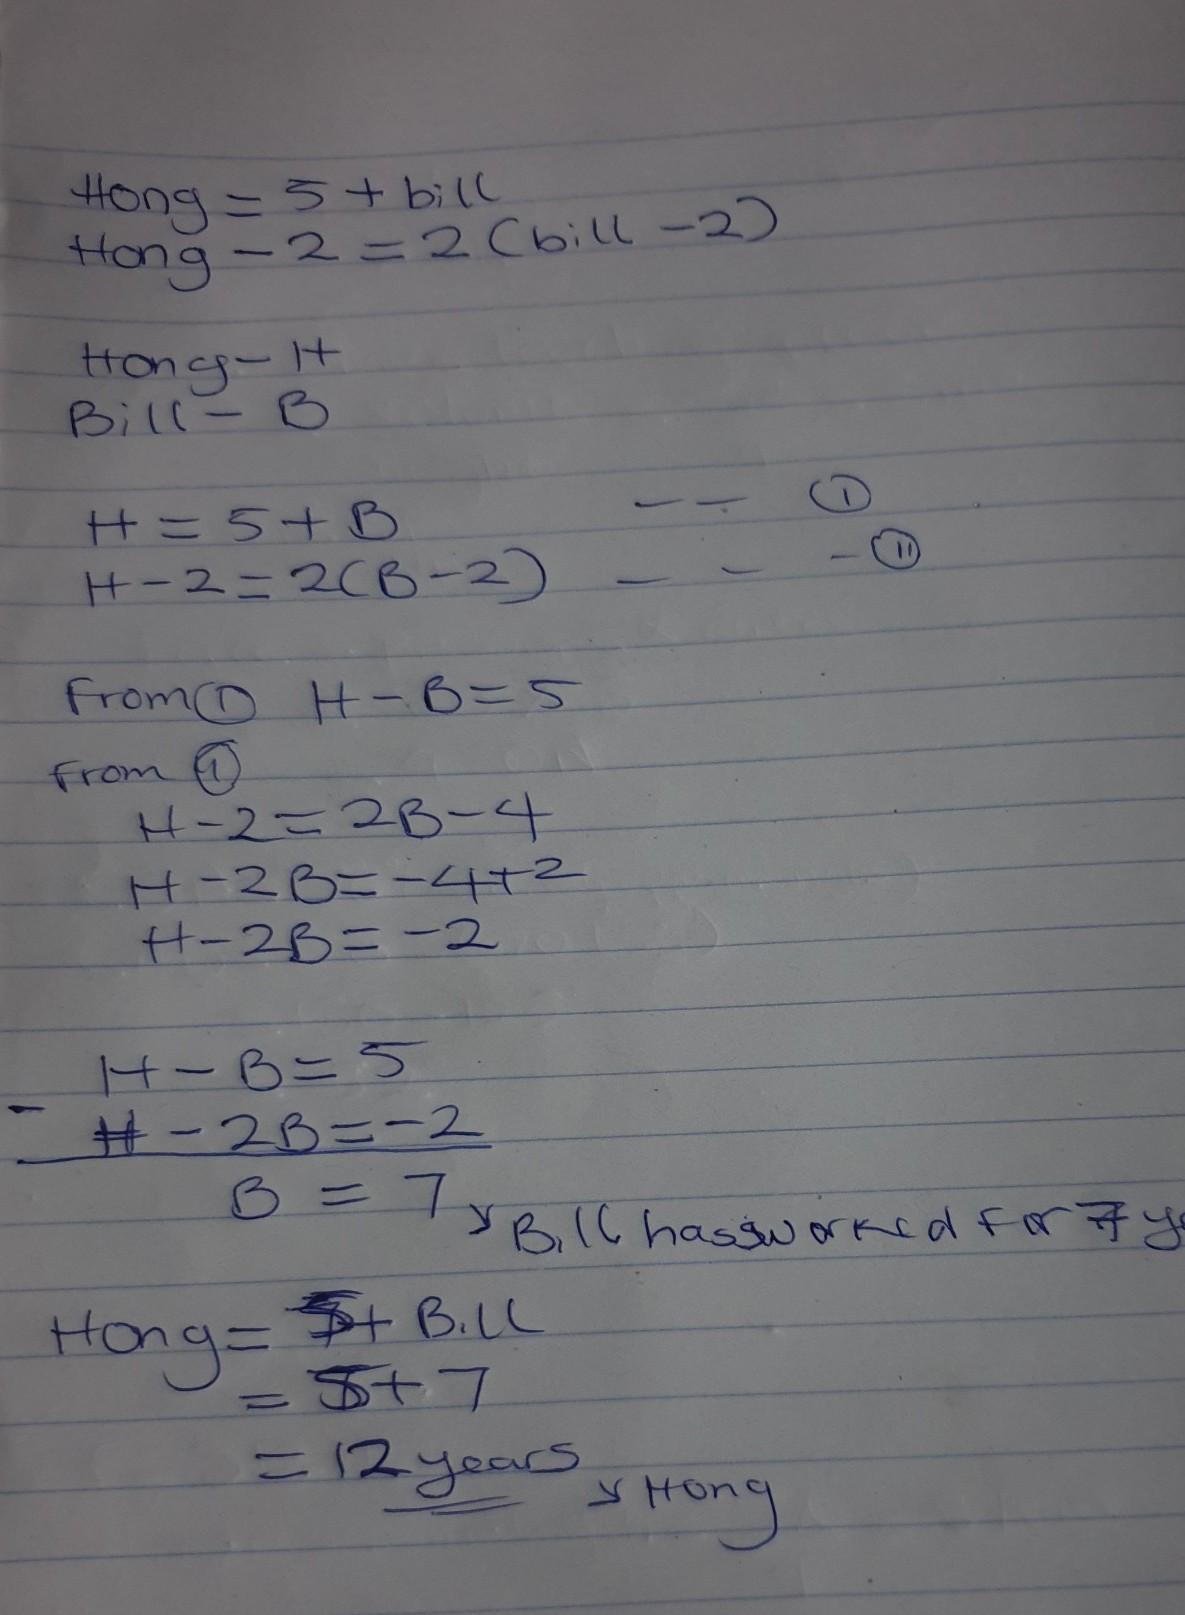 Hong = 5 + bill
Hong - 2 = 2 (bill - 2)
Hong - H
Bill - B
H = 5 + B -- (I)
H - 2 = 2(B - 2) - - - (II)
From (I) H - B = 5
From (I)
H - 2 = 2B - 4
H - 2B = -4+2
H - 2B = -2
H - B = 5
- H - 2B = -2
B = 7 ↘ Bill has worked for 7 ye
Hong = 5 + Bill
= 5 + 7
= 12 years ↘ Hong